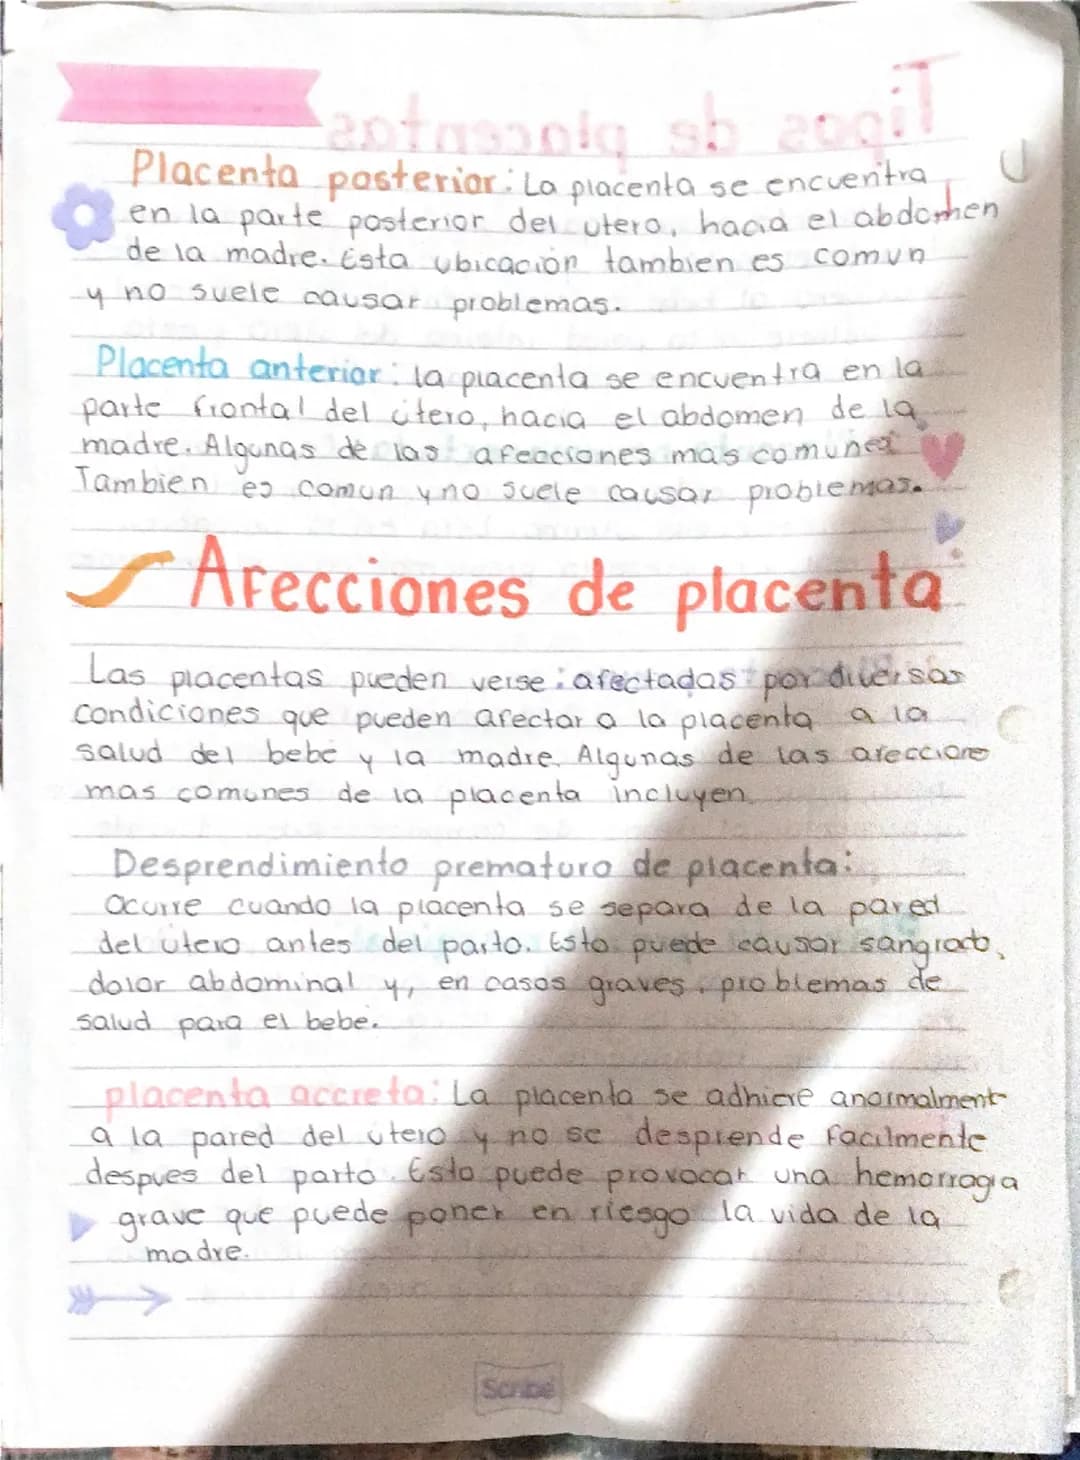 Tipos de placentas
Placenta posterior: La placenta se encuentra
en la parte posterior del utero, hacia el abdomen
de la madre. Esta ubicación tambien es comun
y no suele causar problemas.
Placenta anterior: la placenta se encuentra en la
parte frontal del útero, hacia el abdomen de la
madre. Algunas de las afecciones mas comunes
Tambien es comun y no suele causar problemas.
Afecciones de placenta
Las placentas pueden verse: afectadas por diversas
condiciones que pueden afectar a la placenta a la
salud del bebé y la madre. Algunas de las afeccione
mas comunes de la placenta incluyen
Desprendimiento prematuro de placenta:
Ocurre cuando la placenta se separa de la pared
del utero antes del parto. Esto puede causar sangrado,
dolor abdominal y, en casos graves, problemas de
salud para el bebe.
placenta accreta: La placenta se adhiere anormalment
a la pared del utero y no se desprende facilmente
despues del parto. Esto puede provocar una hemorragia
grave que puede poner en riesgo la vida de la
madre.
Scribe